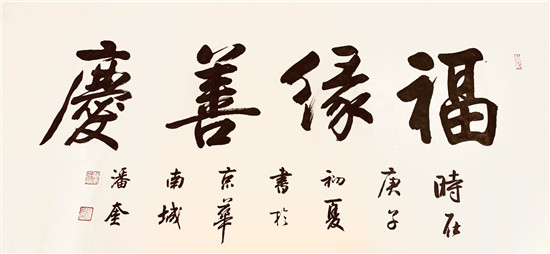 福緣善慶
時在
庚子
初夏
書於
京華
南城
潘奎